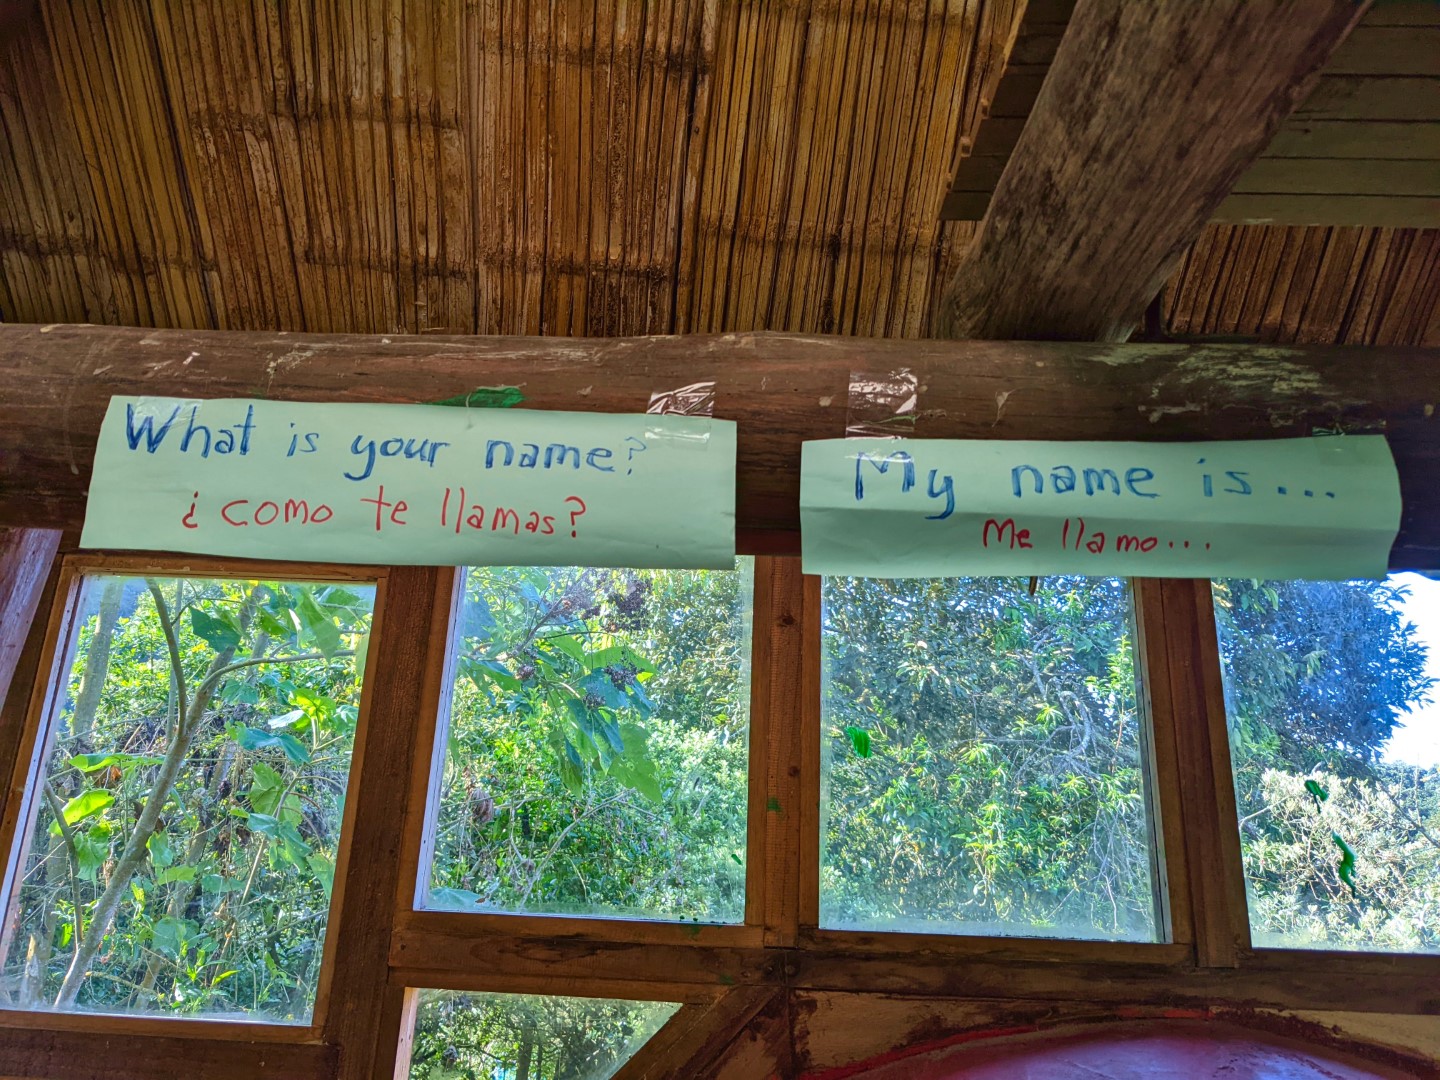 What is your name?
¿como te llamas?
My name is...
Me llamo...